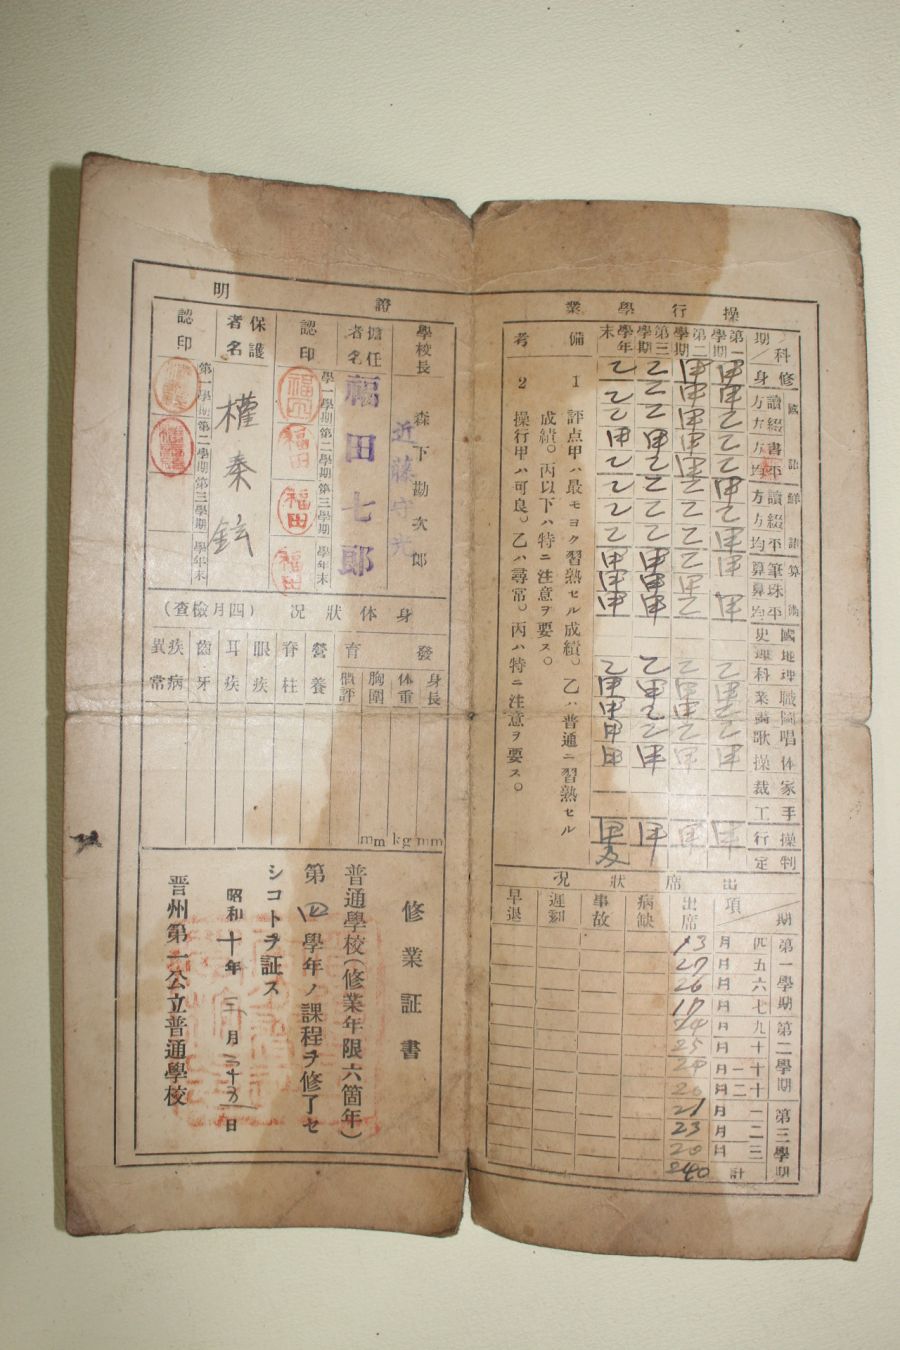 操行學業
科/期
修身
國語
讀方
綴方
書方
平均
鮮語
讀方
綴方
平均
算術
筆算
珠算
平均
國史
地理
理科
職業
圖畫
唱歌
体操
家裁
手工
操行
判定
第一學期
甲 甲 乙 乙 乙 甲 乙 甲 甲 甲 乙 甲 乙 乙 甲 甲
第二學期
甲 甲 甲 甲 甲 乙 乙 乙 甲 乙 乙 甲 甲 乙 甲 甲
第三學期
乙 乙 乙 甲 乙 乙 乙 乙 甲 甲 甲 乙 甲 乙 乙 甲 甲
學年末
乙 乙 乙 甲 乙 乙 乙 乙 甲 甲 甲 乙 甲 甲 甲 甲 甲
備考
1 評点甲ハ最モヨク習熟セル成績。乙ハ普通ニ習熟セル
成績。丙以下ハ特ニ注意ヲ要ス。
2 操行甲ハ可良。乙ハ尋常。丙ハ特ニ注意ヲ要ス。
出席狀況
期/項
第一學期
四月 五月 六月 七月
第二學期
九月 十月 十一月 十二月
第三學期
一月 二月 三月
計
出席
23 27 26 17 24 25 24 20 21 23 20 240
病缺
事故
遲刻
早退
證明
學校長 森下勘次郎
近藤守光
擔任者名 福田七郎
認印
第一學期 第二學期 第三學期 學年末
福田
福田
福田
福田
保護者名 權泰鉉
認印
第一學期 第二學期 第三學期 學年末
身体狀況(四月檢查)
發育
身長 体重 胸圍 槪評
營養
脊柱
眼疾
耳疾
齒牙
疾病異常
mm kg mm
修業証書
普通學校(修業年限六箇年)
第四學年ノ課程ヲ修了セ
シコトヲ証ス
昭和十年三月二十五日
晋州第一公立普通學校